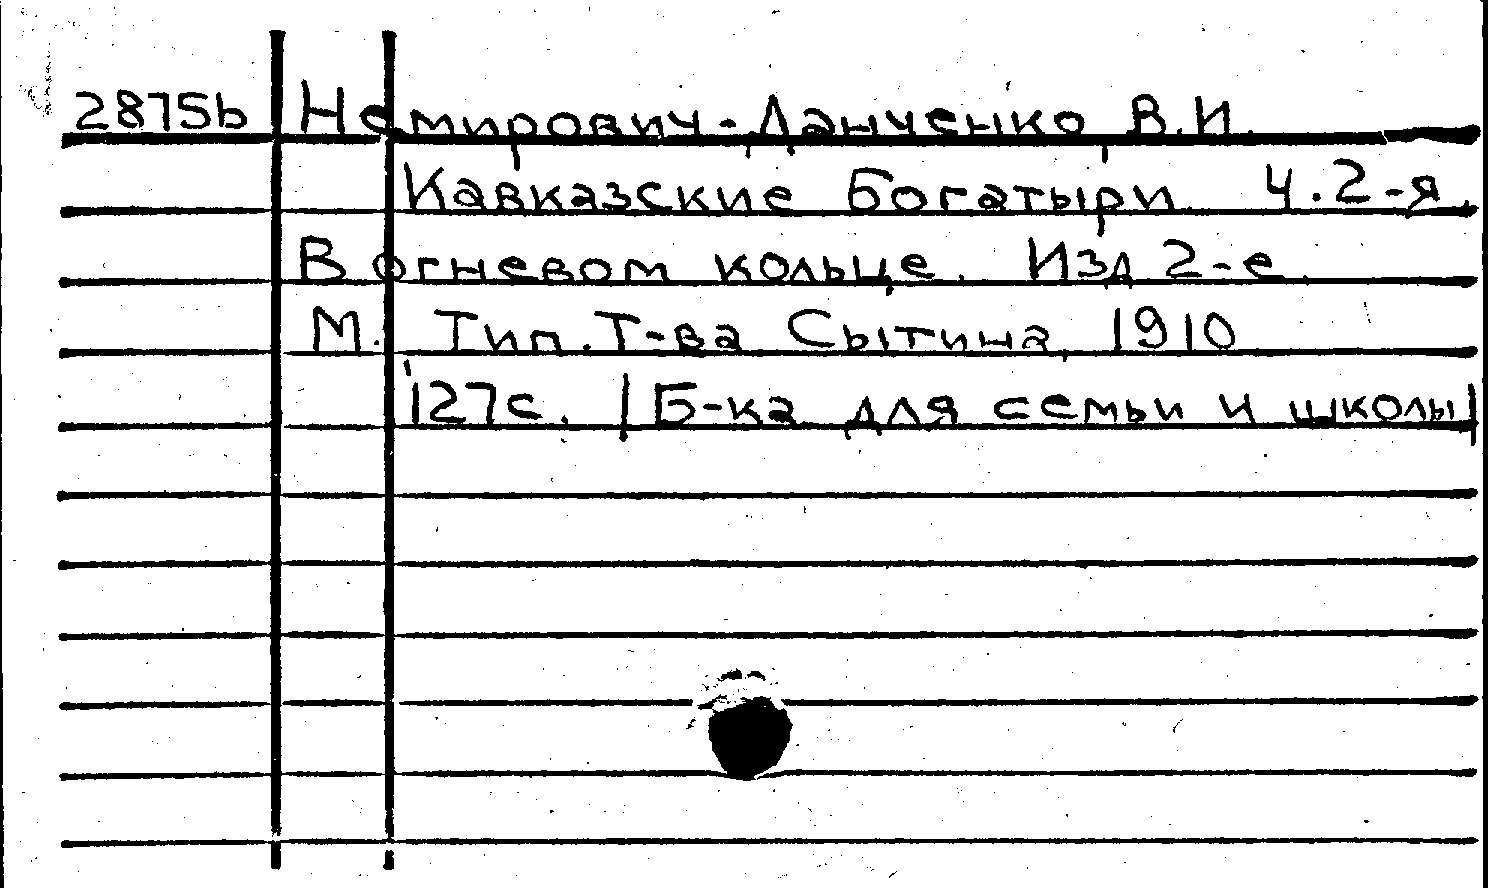 2875b Немирович-Данченко В.И.
Кавказские богатыри. Ч.2-я.
В огневом кольце. Изд 2-е.
М. Тип. Т-ва Сытина, 1910
127с. |Б-ка для семьи и школы|